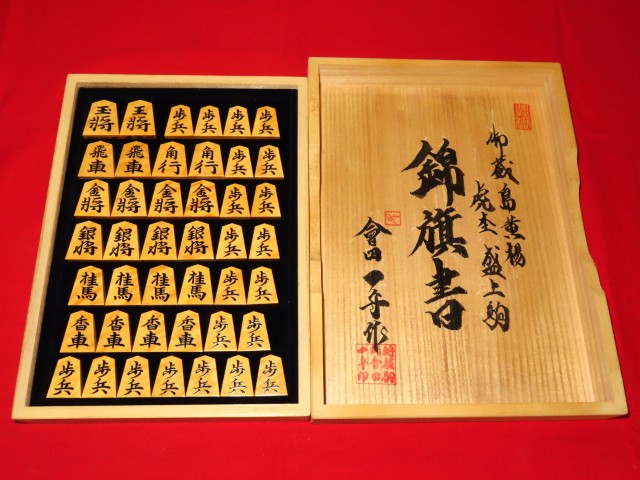 玉將 玉將 歩兵 歩兵 歩兵 歩兵
飛車 飛車 角行 角行 歩兵 歩兵
金將 金將 金將 金將 歩兵 歩兵
銀將 銀將 銀將 銀將 歩兵 歩兵
桂馬 桂馬 桂馬 桂馬 歩兵 歩兵
香車 香車 香車 香車 歩兵 歩兵
歩兵 歩兵 歩兵 歩兵 歩兵 歩兵 歩兵
御蔵島黄楊
虎杢 盛上駒
錦旗書
會田一手作